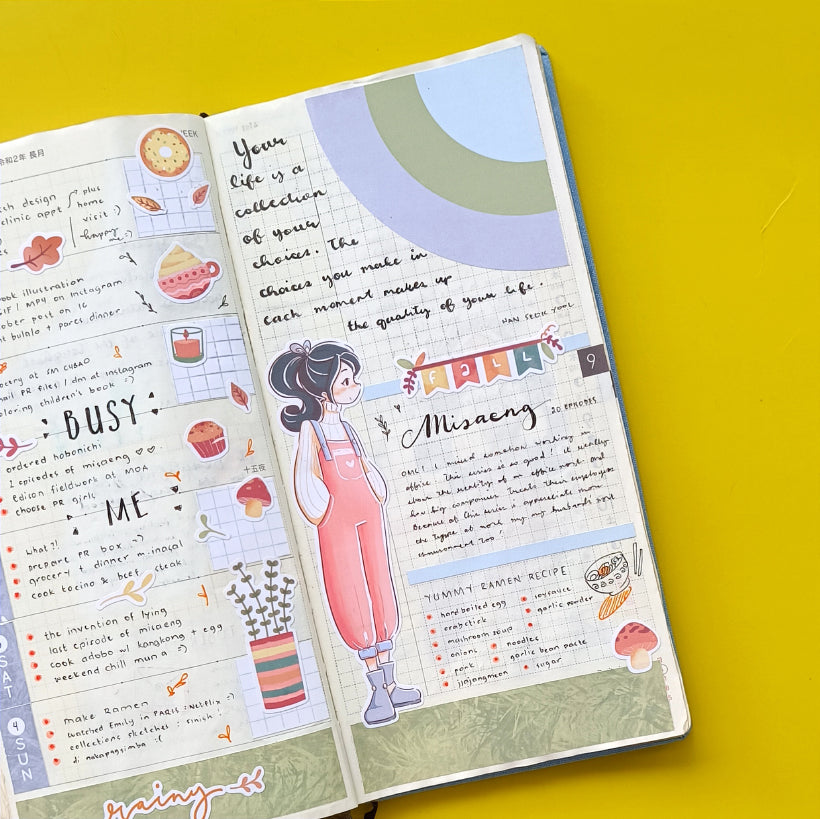 WEEK
令和2年 長月
design
clinic appt
plus
home
visit :)
happy
me :)
book illustration
GIF / MP4 on Instagram
october post on 16
bulalo + pares dinner
grocery at SM CUBAO
email PR files / dm at instagram
coloring children's book :)
BUSY
ordered hobonichi
2 episodes of misaeng ♡♡
Edison fieldwork at MOA
choose PR girls
十五夜
ME
what?!
prepare PR box :)
grocery + dinner w. inasal
cook tocino & beef steak
SAT
the invention of lying
last episode of misaeng
cook adobo w/ kangkong + egg
weekend chill muna :)
4
SUN
make Ramen
watched Emily in PARIS : Netflix :)
collections sketches : finish!
di nakapagsimba :(
rainy
Your
life is a
collection
of your
choices. The
choices you make in
each moment makes up
the quality of your life.
HAN SEOK YOOL
FALL
9
Misaeng
20 EPISODES
OMG! I missed somehow working in
office. This series is so good! it really
show the reality of an office work and
how big companies treats their employees
Because of this series i appreciate more
the type of work my my husband's work
environment too!
YUMMY RAMEN RECIPE
hard boiled egg
soy sauce
crabstick
garlic powder
mushroom soup
onions
noodles
pork
garlic bean paste
jjajangmeon
sugar